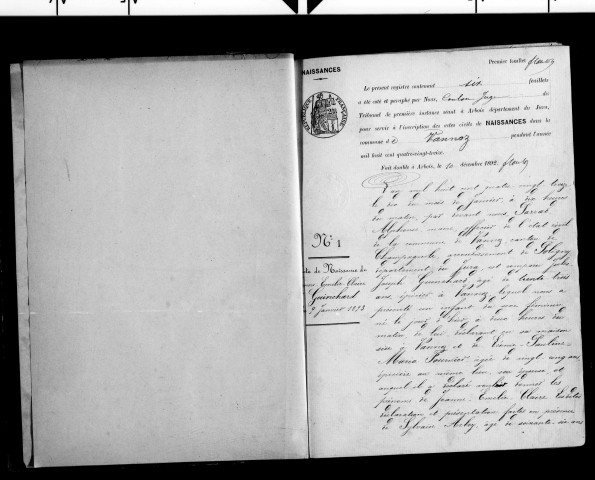 Premier feuillet
NAISSANCES
Le présent registre contenant six feuillets
a été coté et paraphé par Nous, Coulon Juge du
Tribunal de première instance séant à Arbois département du Jura,
pour servir à l'inscription des actes civils de NAISSANCES dans la
commune de Vannoz pendant l'année
mil huit cent quatre-vingt-treize.
Fait double à Arbois, le 10 décembre 1892.
RÉPUBLIQUE FRANÇAISE
N° 1
de Naissance de
Emilie Claire
Guinchard
9 Janvier 1893
L'an mil huit cent quatre vingt treize
le dix du mois de janvier, à dix heures
du matin, par devant nous
Alphonse, maire officier de l'état civil
de la commune de Vannoz, canton de
Champagnole, arrondissement de Poligny
département du Jura, est comparu
Joseph Guinchard, âgé de trente trois
ans, à Vannoz lequel nous a
présenté un enfant du sexe féminin
né le jour d'hier à deux heures du
matin, de lui déclarant en sa maison
sise à Vannoz et de
Maria âgée de vingt cinq ans
au même lieu, son épouse, et
auquel il a déclaré vouloir donner les
prénoms de Jeanne Emilie Claire
déclaration et présentation faites en présence
de Sylvain âgé de soixante six ans